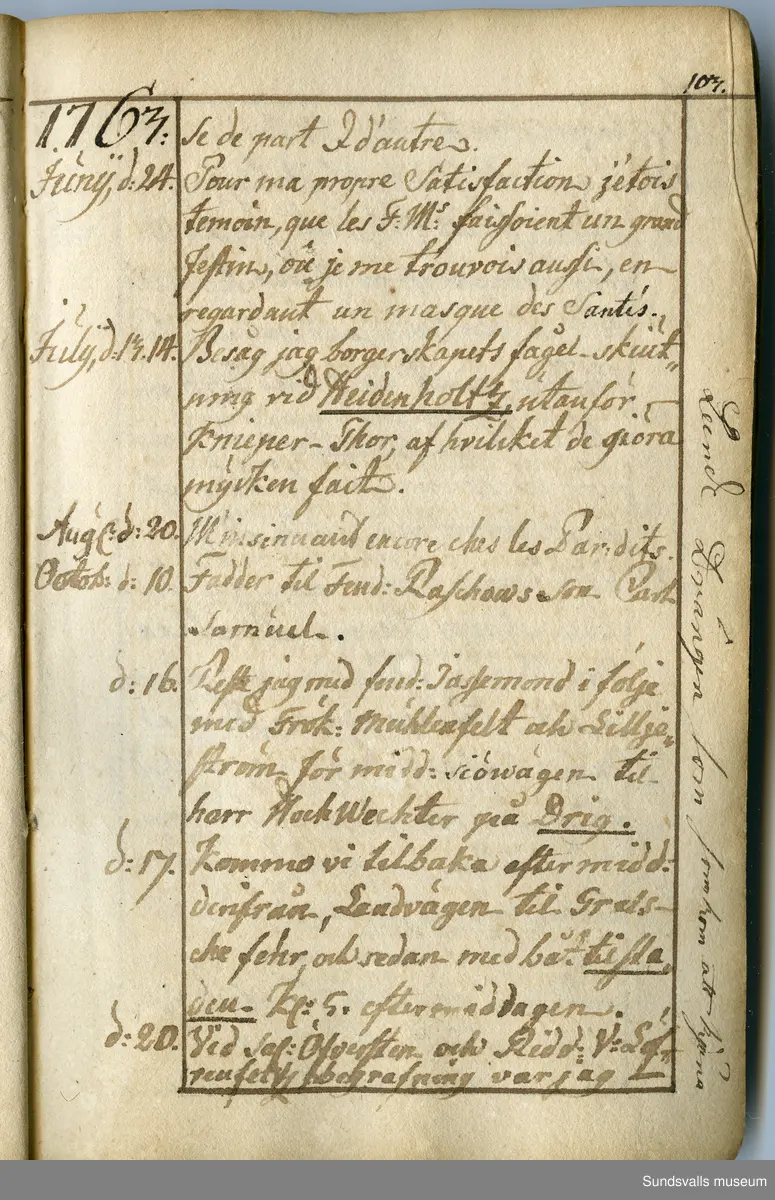 103.
1763: se de part & d'autre.
Junÿ, d: 24. Pour ma propre Satisfaction j'étois
temoin, que les F: M:s faissoient un grand
festin, où je me trouvois aussi, en
regardant un masque des Santés.
July, d: 13. 14. Besåg jag borgerskapets fågel-skiut-
ning vid Heidenholtz utanför
Knieper-Thor, af hvilcket de giöra
mÿcken fait.
Aug: d: 20. M'insinuant encore ches les Par: dits.
Octob: d: 10. Fadder til Fend: Raschows son Carl
Samuel.
d: 16. Reste jag med fend: Jassemond i följe
med Frök: Mühlenfelt och Lillje-
ström för midd: siöwägen til
harr Hock Wechter på Drig.
d: 17. Kommo vi tilbaka efter midd:
dinfrån, Landvägen til Grals-
che fehr, och sedan med båt til sta
den Kl: 5. eftermiddagen.
d: 20. Vid Sal: Öfversten och Ridd: V: Löf-
renfeltz begrafning var jag
Lund Drängen som hon at tjena
Sundsvalls museum